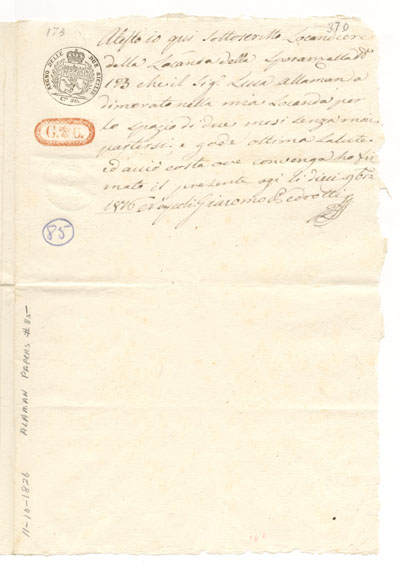 173
370
Attesto io qui sottoscritto Locandiere
della Locanda della Speranzella N.º
123 che il Sig.r Luca Allaman a
dimorato nella mia Locanda per
lo spazio di due mesi senza mai
partirsi, e gode ottima salute
ed acciò costa ove convenga ho fir
mato il presente oggi li dieci 9bre
1826 Napoli Giacomo Pedrotti
REGNO DELLE DUE SICILIE
G. 6.
85
11-10-1826 ALAMAN PAPERS #85